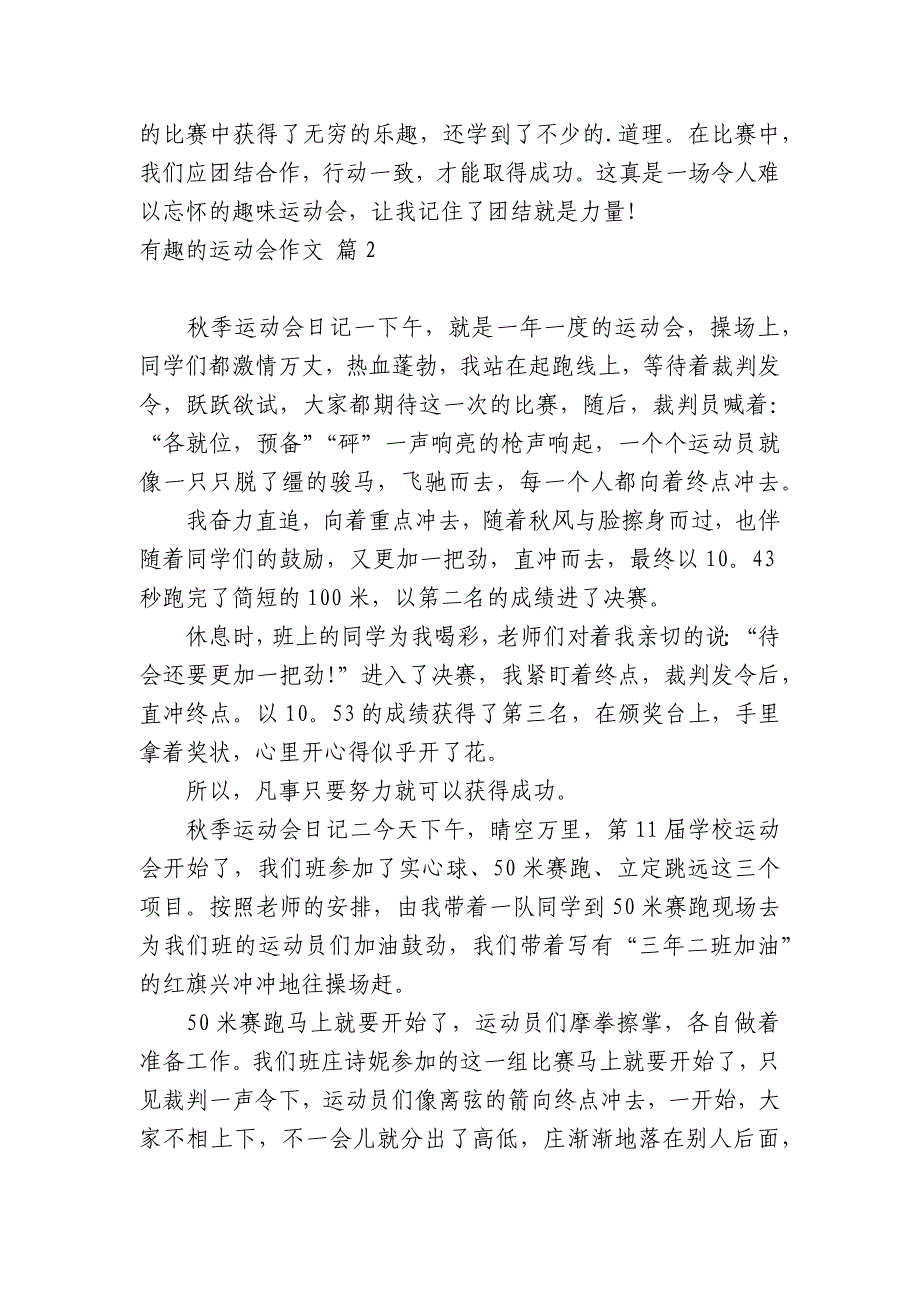 的比赛中获得了无穷的乐趣，还学到了不少的.道理。在比赛中，
我们应团结合作，行动一致，才能取得成功。这真是一场令人难
以忘怀的趣味运动会，让我记住了团结就是力量！
有趣的运动会作文 篇2
秋季运动会日记一下午，就是一年一度的运动会，操场上，
同学们都激情万丈，热血蓬勃，我站在起跑线上，等待着裁判发
令，跃跃欲试，大家都期待这一次的比赛，随后，裁判员喊着：
“各就位，预备”“砰”一声响亮的枪声响起，一个个运动员就
像一只只脱了缰的骏马，飞驰而去，每一个人都向着终点冲去。
我奋力直追，向着重点冲去，随着秋风与脸擦身而过，也伴
随着同学们的鼓励，又更加一把劲，直冲而去，最终以10。43
秒跑完了简短的100米，以第二名的成绩进了决赛。
休息时，班上的同学为我喝彩，老师们对着我亲切的说：“待
会还要更加一把劲！”进入了决赛，我紧盯着终点，裁判发令后，
直冲终点。以10。53的成绩获得了第三名，在颁奖台上，手里
拿着奖状，心里开心得似乎开了花。
所以，凡事只要努力就可以获得成功。
秋季运动会日记二今天下午，晴空万里，第11届学校运动
会开始了，我们班参加了实心球、50米赛跑、立定跳远这三个
项目。按照老师的安排，由我带着一队同学到50米赛跑现场去
为我们班的运动员们加油鼓劲，我们带着写有“三年二班加油”
的红旗兴冲冲地往操场赶。
50米赛跑马上就要开始了，运动员们摩拳擦掌，各自做着
准备工作。我们班庄诗妮参加的这一组比赛马上就要开始了，只
见裁判一声令下，运动员们像离弦的箭向终点冲去，一开始，大
家不相上下，不一会儿就分出了高低，庄渐渐地落在别人后面，